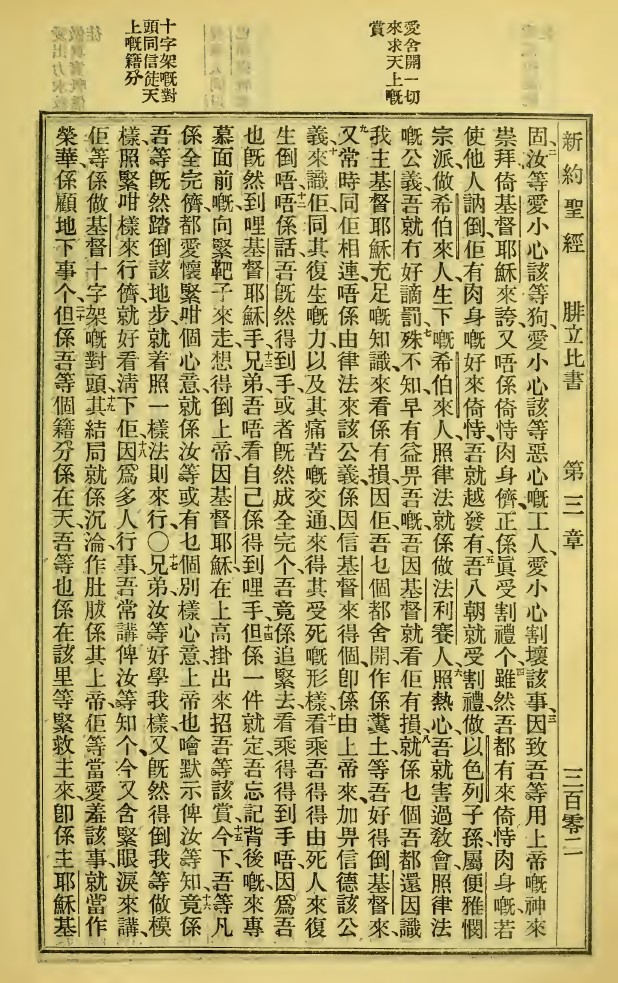 愛舍開一切
來求天上嘅
賞
十字架嘅對
頭同信徒天
上嘅籍分
新約聖經 腓立比書 第三章 三百零二
固、二汝等愛小心該等狗、愛小心該等惡心嘅工人、愛小心割壞該事、三因致吾等用上帝嘅神來
崇拜倚基督耶穌來誇、又唔係倚恃肉身儕、正係眞受割禮个、四雖然吾都有來倚恃肉身嘅、若
使他人訥倒佢有肉身嘅好來倚恃、吾就越發有、五吾八朝就受割禮、做以色列子孫、屬便雅憫
宗派、做希伯來人生下嘅希伯來人、照律法就係做法利賽人、六照熱心、吾就害過敎會、照律法
嘅公義、吾就冇好謫罰、七殊不知早有益畀吾嘅、吾因基督就看佢有損、八就係乜個吾都還因識
我主基督耶穌充足嘅知識、來看係有損、因佢吾乜個都舍開、作係糞土等吾好得倒基督來、
九又常時同佢相連、唔係由律法來該公義、係因信基督來得個、卽係由上帝來、加畀信德該公
義、十來識佢同其復生嘅力、以及其痛苦嘅交通、來得其受死嘅形樣、十一看乘吾得得由死人來復
生倒唔、十二唔係話吾旣然得到手、或者旣然成全完个、吾竟係追緊去、看乘得得到手唔、因爲吾
也旣然到哩基督耶穌手、十三兄弟吾唔看自己係得到哩手、但係一件就定、十四吾忘記背後嘅、來專
慕面前嘅、向緊靶子來走、想得倒上帝因基督耶穌在上高掛出來招吾等該賞、十五今下吾等凡
係全完儕、都愛懷緊咁個心意、就係汝等或有乜個別樣心意、上帝也噲默示俾汝等知、十六竟係
吾等旣然踏倒該地步、就着照一樣法則來行、〇十七兄弟汝等好學我樣、又旣然得倒我等做模
樣、照緊咁樣來行儕、就好看淸下佢、十八因爲多人行事、吾常講俾汝等知个、今又含緊眼淚來講、
佢等係做基督十字架嘅對頭、十九其結局就係沉淪、作肚肱係其上帝、佢等當愛羞該事、就當作
榮華、係顧地下事个、二十但係吾等個籍分係在天、吾等也係在該里等緊救主來、卽係主耶穌基